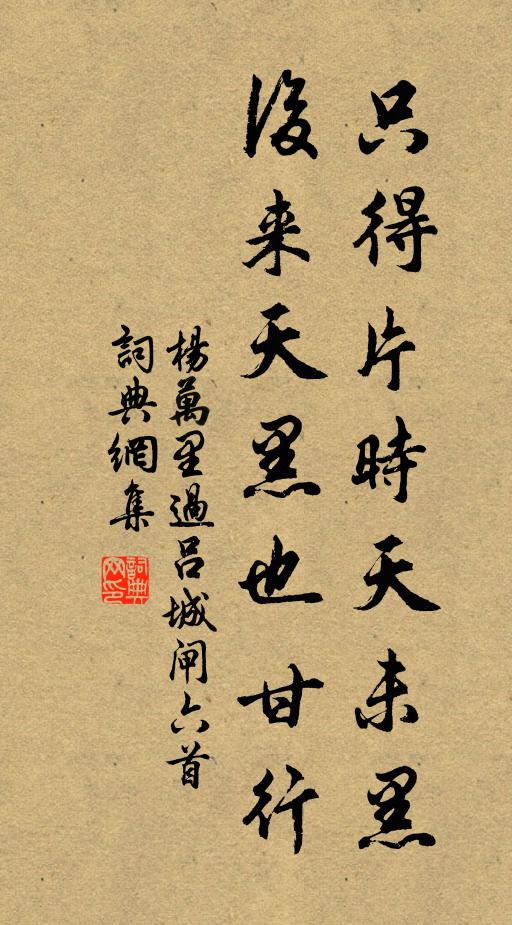 只得片時天未黑
後来天黑也甘行
楊萬里過吕城闸六首
詞典網集
詞典網印